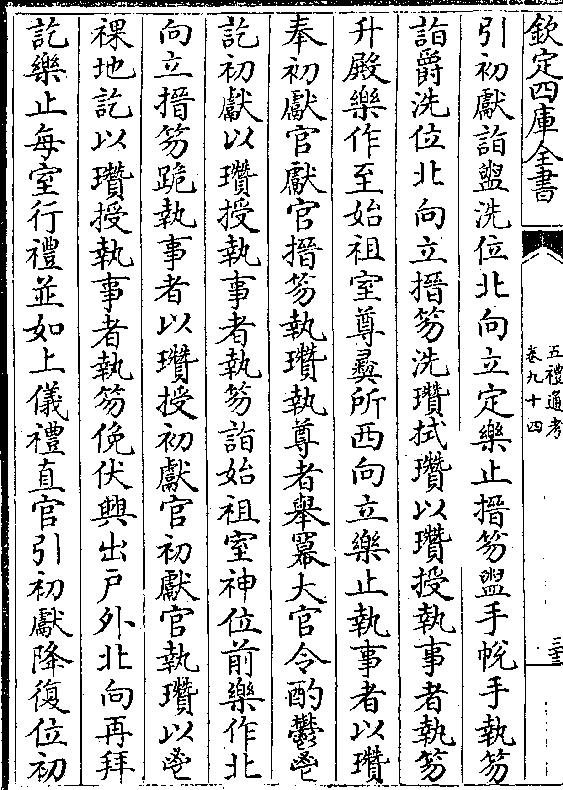 欽定四庫全書
五禮通考
卷九十四
三三
引初獻詣盥洗位北向立定樂止搢笏盥手帨手執笏
詣爵洗位北向立搢笏洗瓚拭瓚以瓚授執事者執笏
升殿樂作至始祖室尊彞所西向立樂止執事者以瓚
奉初獻官獻官搢笏執瓚執尊者舉冪大官令酌鬱鬯
訖初獻以瓚授執事者執笏詣始祖室神位前樂作北
向立搢笏跪執事者以瓚授初獻官初獻官執瓚以鬯
祼地訖以瓚授執事者執笏俛伏興出户外北向再拜
訖樂止每室行禮並如上儀禮直官引初獻降復位初